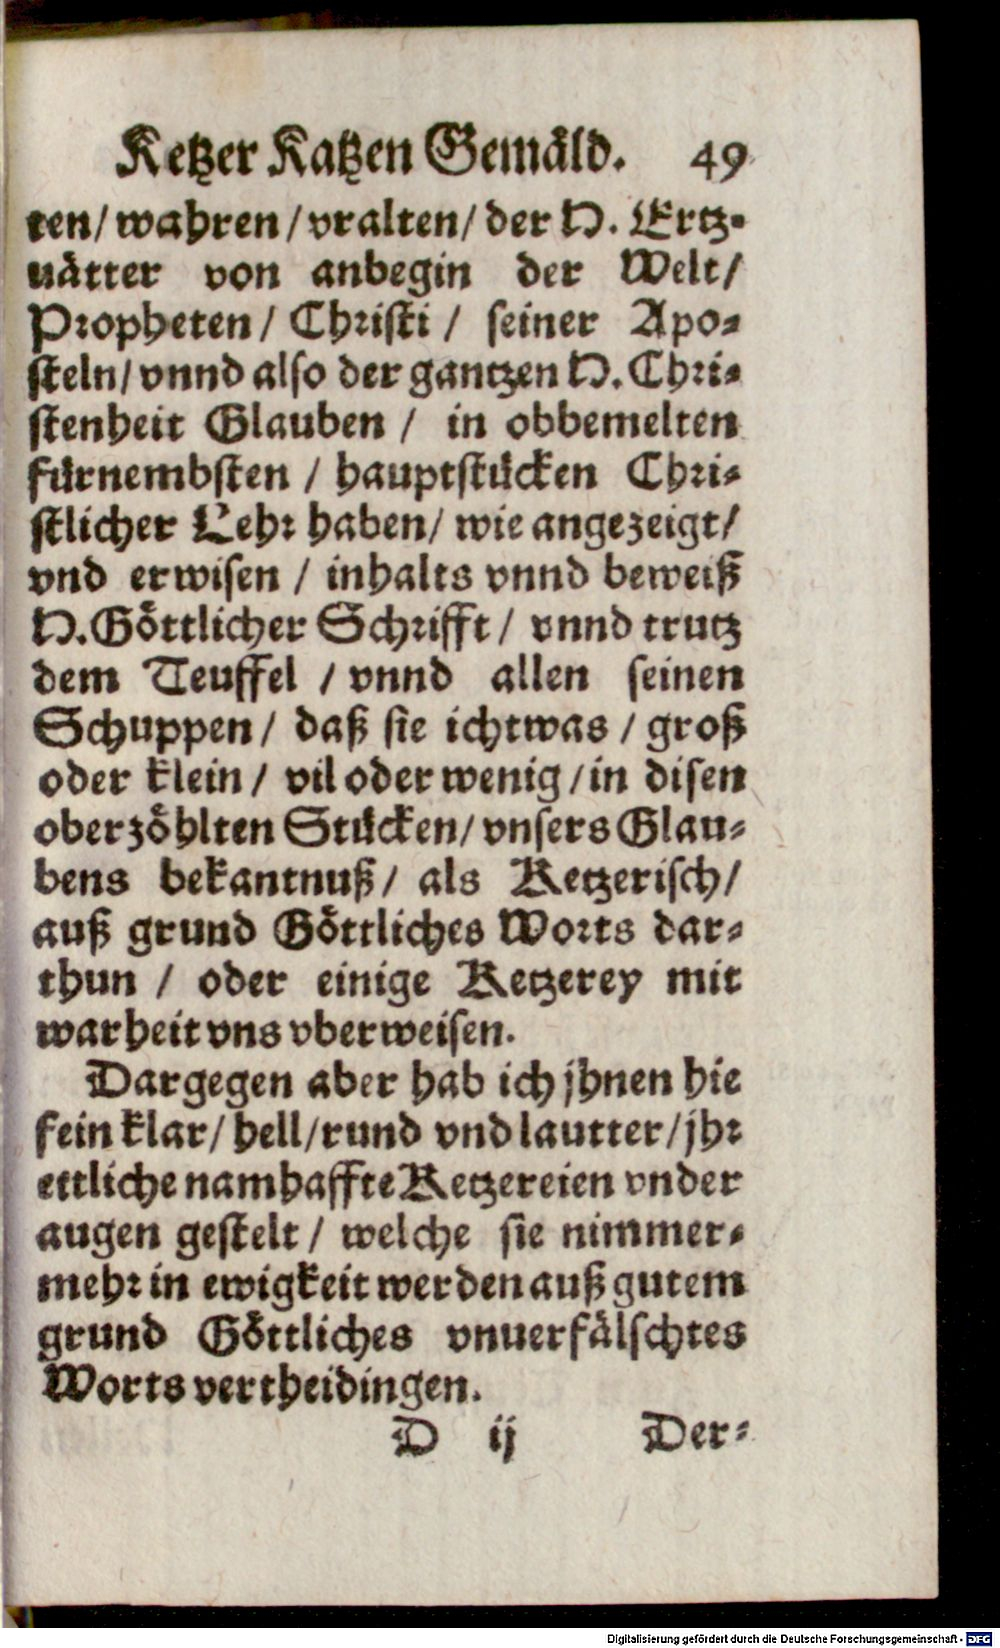 Ketzer Katzen Gemäld. 49
ten/ wahren / vralten/ der H. Ertz-
uätter von anbegin der Welt/
Propheten / Christi / seiner Apo-
steln/ vnnd also der gantzen H. Chri-
stenheit Glauben / in obbemelten
fürnembsten / hauptstücken Chri-
stlicher Lehr haben/ wie angezeigt/
vnd erwisen / inhalts vnnd beweiß
H. Göttlicher Schrifft / vnnd trutz
dem Teuffel / vnnd allen seinen
Schuppen / daß sie ichtwas / groß
oder klein / vil oder wenig / in disen
oberzöhlten Stücken/ vnsers Glau-
bens bekantnuß / als Ketzerisch/
auß grund Göttliches Worts dar-
thun / oder einige Ketzerey mit
warheit vns vberweisen.
Dargegen aber hab ich jhnen hie
fein klar/ hell/ rund vnd lautter/ jhr
ettliche namhaffte Ketzereien vnder
augen gestelt / welche sie nimmer-
mehr in ewigkeit werden auß gutem
grund Göttliches vnuerfälschtes
Worts vertheidingen.
D ij Der-
Digitalisierung gefördert durch die Deutsche Forschungsgemeinschaft - DFG